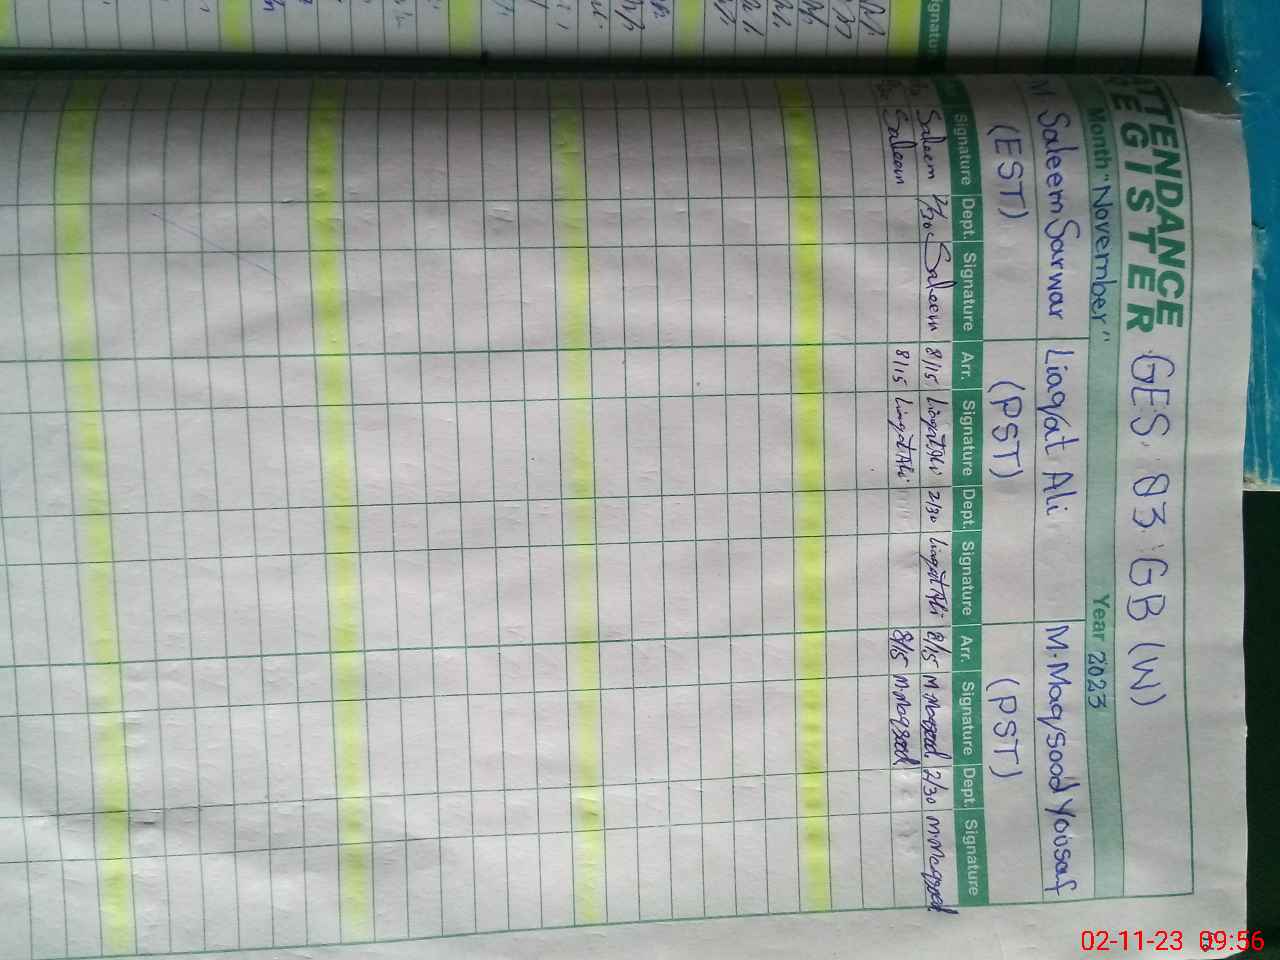 ATTENDANCE REGISTER GES. 03. GB (W)
Month "November" Year 2023
M Saleem Sarwar Liaqat Ali M. Maqsood Yousaf
(EST) (PST) (PST)
Signature Dept. Signature Arr. Signature Dept. Signature Arr. Signature Dept. Signature
Saleem 2/30 Saleem 8/15 Liaqat Ali 2/30 Liaqat Ali 8/15 M. Maqsood 2/30 M. Maqsood
Saleem 8/15 Liaqat Ali 8/15 M. Maqsood
Signature
02-11-23 09:56